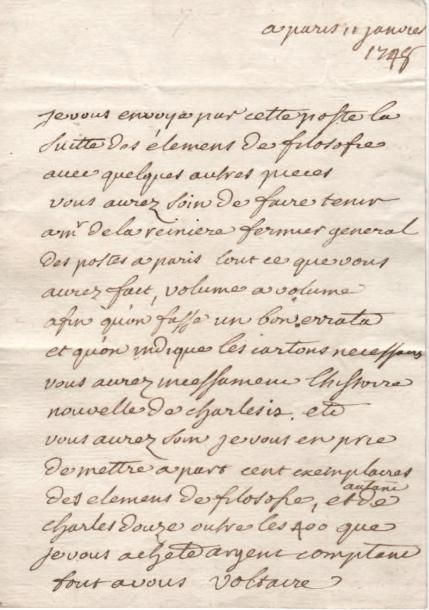 a paris 11 janvier
1748
je vous envoye par cette poste la
suitte des elemens de filosofie
avec quelques autres pieces
vous aurez soin de faire tenir
a mr de la reiniere fermier general
des postes a paris tout ce que vous
aurez fait, volume a volume
afin qu'on fasse un bon errata
et qu'on indique les cartons necessaires
vous aurez incessament l'histoire
nouvelle de charles 12. etc
vous aurez soin je vous en prie
de mettre a part cent exemplaires
des elemens de filosofie, et autant de
charles douze outre les 400 que
je vous achete argent comptant
tout a vous voltaire